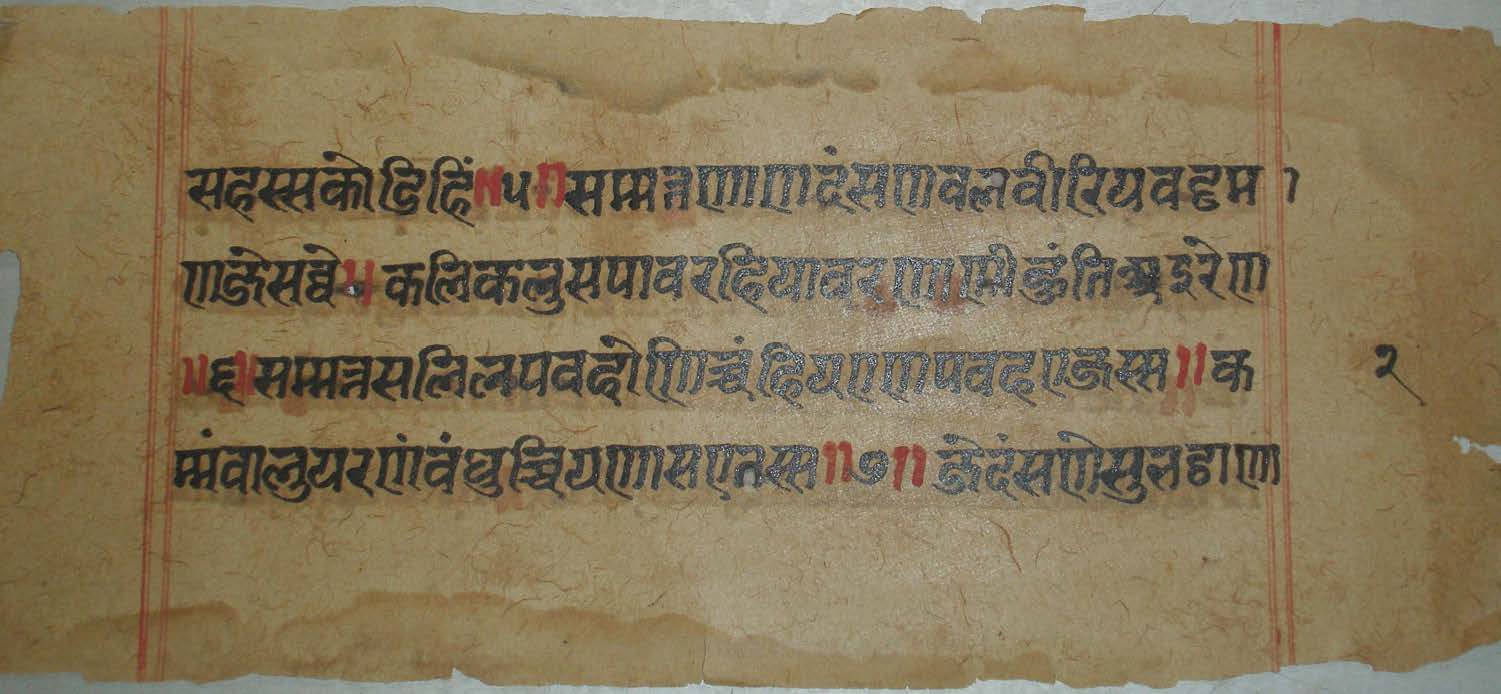 सहस्सकोडिहिं॥५॥सम्मत्तणाणदंसणवलवीरियवट्टम
णजेसव्वे॥कलिकलुसपावरहियावरणाणीहुंतिअइरेण
॥६॥सम्मत्तसलिलपवहोणिच्चंहियएणपवहएजस्स॥क २
म्मंवालुयरणंवंधुच्चियणासएतस्स॥७॥जेदंसणेसुनठाण